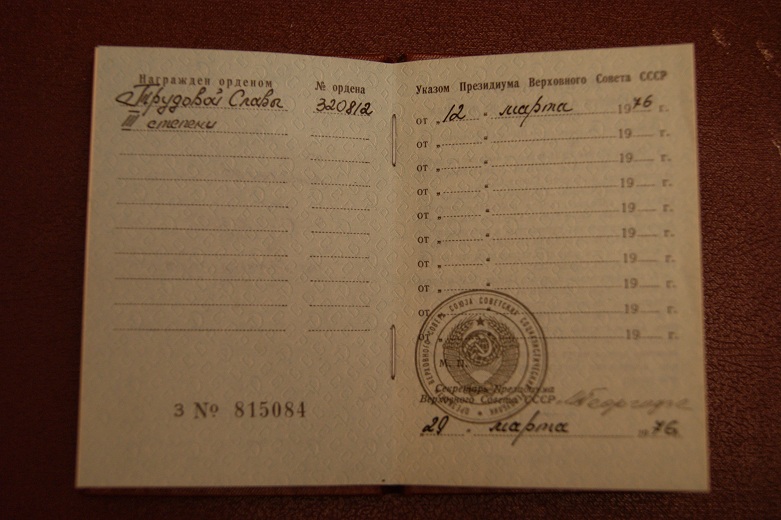 Награжден орденом
№ ордена
Трудовой Славы
320812
III степени
З № 815084
Указом Президиума Верховного Совета СССР
от „ 12 “ марта 1976 г.
от „ “ 19 г.
от „ “ 19 г.
от „ “ 19 г.
от „ “ 19 г.
от „ “ 19 г.
от „ “ 19 г.
от „ “ 19 г.
от „ “ 19 г.
от „ “ 19 г.
М. П.
Секретарь Президиума
Верховного Совета СССР
29 марта 1976